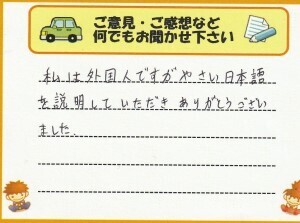 ご意見・ご感想など
何でもお聞かせ下さい
私は外国人ですがやさい日本語
を説明していただきありがとうござい
ました.